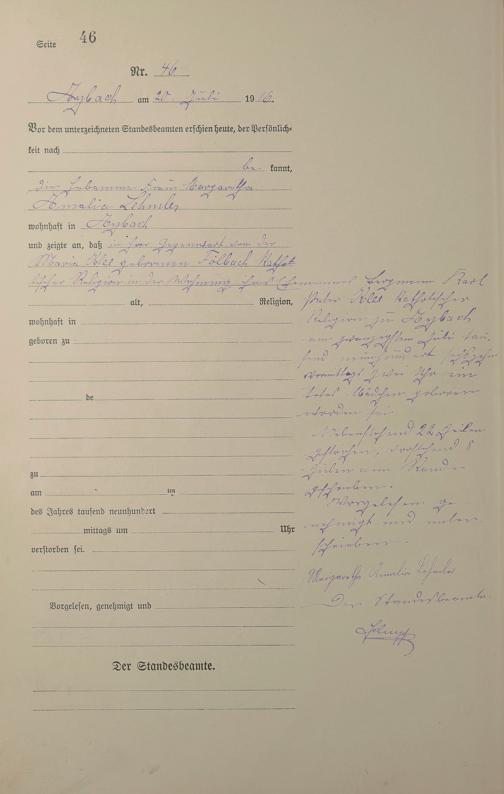 Seite 46
Nr. 46
Aßbach am 20. Juli 1916.
Vor dem unterzeichneten Standesbeamten erschien heute, der Persönlich-
keit nach
be kannt,
die Hebamme Frau Margaretha
Amalia Lehnles
wohnhaft in
und zeigte an, daß in ihrer Gegenwart von der
Maria Klee geborenen Folbach kathol
ischer Religion in der Wohnung ihres Ehemannes Bergmann Karl
Peter Klee katholischer
Religion zu
am zwanzigsten Juli tau
send neunhundert sechzehn
vormittags zwei Uhr ein
totes Mädchen geboren
worden sei.
alt, Religion,
wohnhaft in
geboren zu
de
zu
am
des Jahres tausend neunhundert
mittags um Uhr
verstorben sei.
Nebenstehend 22 Zeilen
gestrichen, vorstehend 8
Zeilen am Rande
geschrieben.
Vorgelesen, ge
nehmigt und unter
schrieben.
Margaretha Amalia
Der Standesbeamte.
Vorgelesen, genehmigt und
Der Standesbeamte.